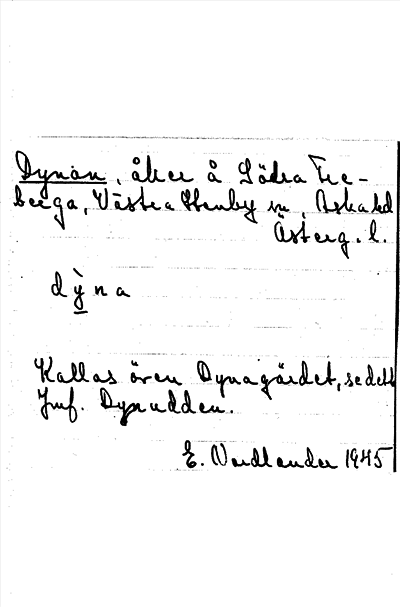 Dynan, åker å Södra Fre-
berga, Västra Stenby sn, Aska hd
Österg. l.
dỳna
Kallas även Dynagärdet, se dett
Jmf. Dynudden.
E. Nordlander 1945